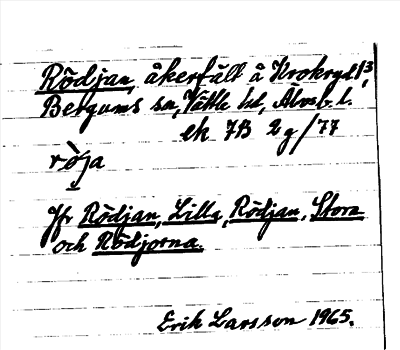 Rödjan, åkerfält å Krokryd 1/3,
Bergums sn, Vättle hd, Älvsb. l.
ek 7B 2g/77
röja
Jfr Rödjan, Lilla, Rödjan, Stora
och Rödjorna.
Erik Larsson 1965.